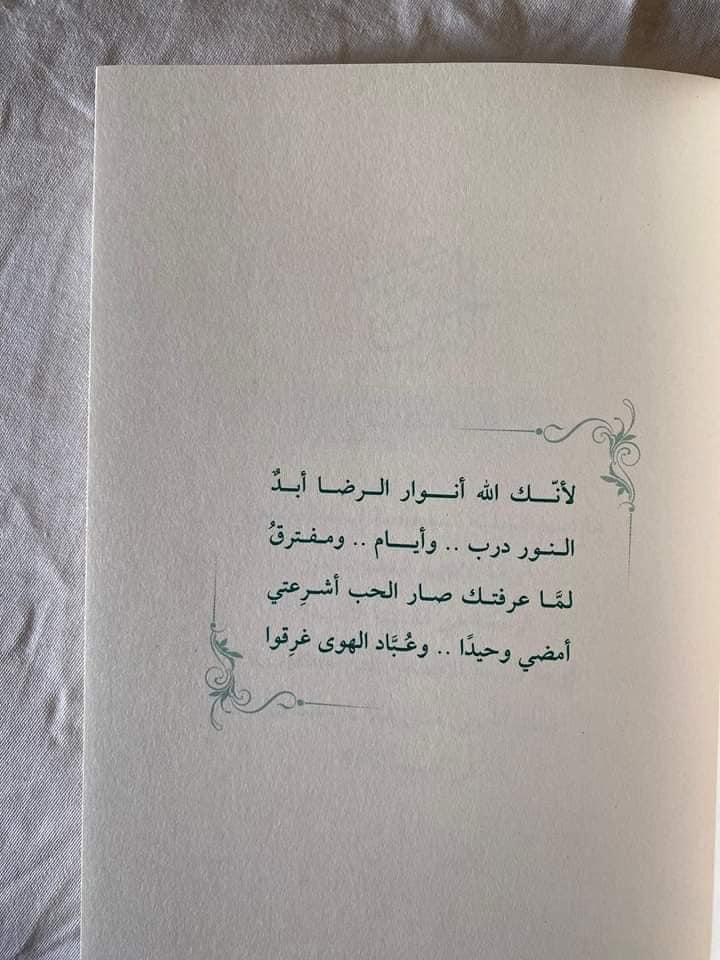 لأنّك الله أنوار الرضا أبدٌ
النور درب .. وأيام .. ومفترقُ
لمَّا عرفتك صار الحب أشرِعتي
أمضي وحيدًا .. وعُبَّاد الهوى غرِقوا